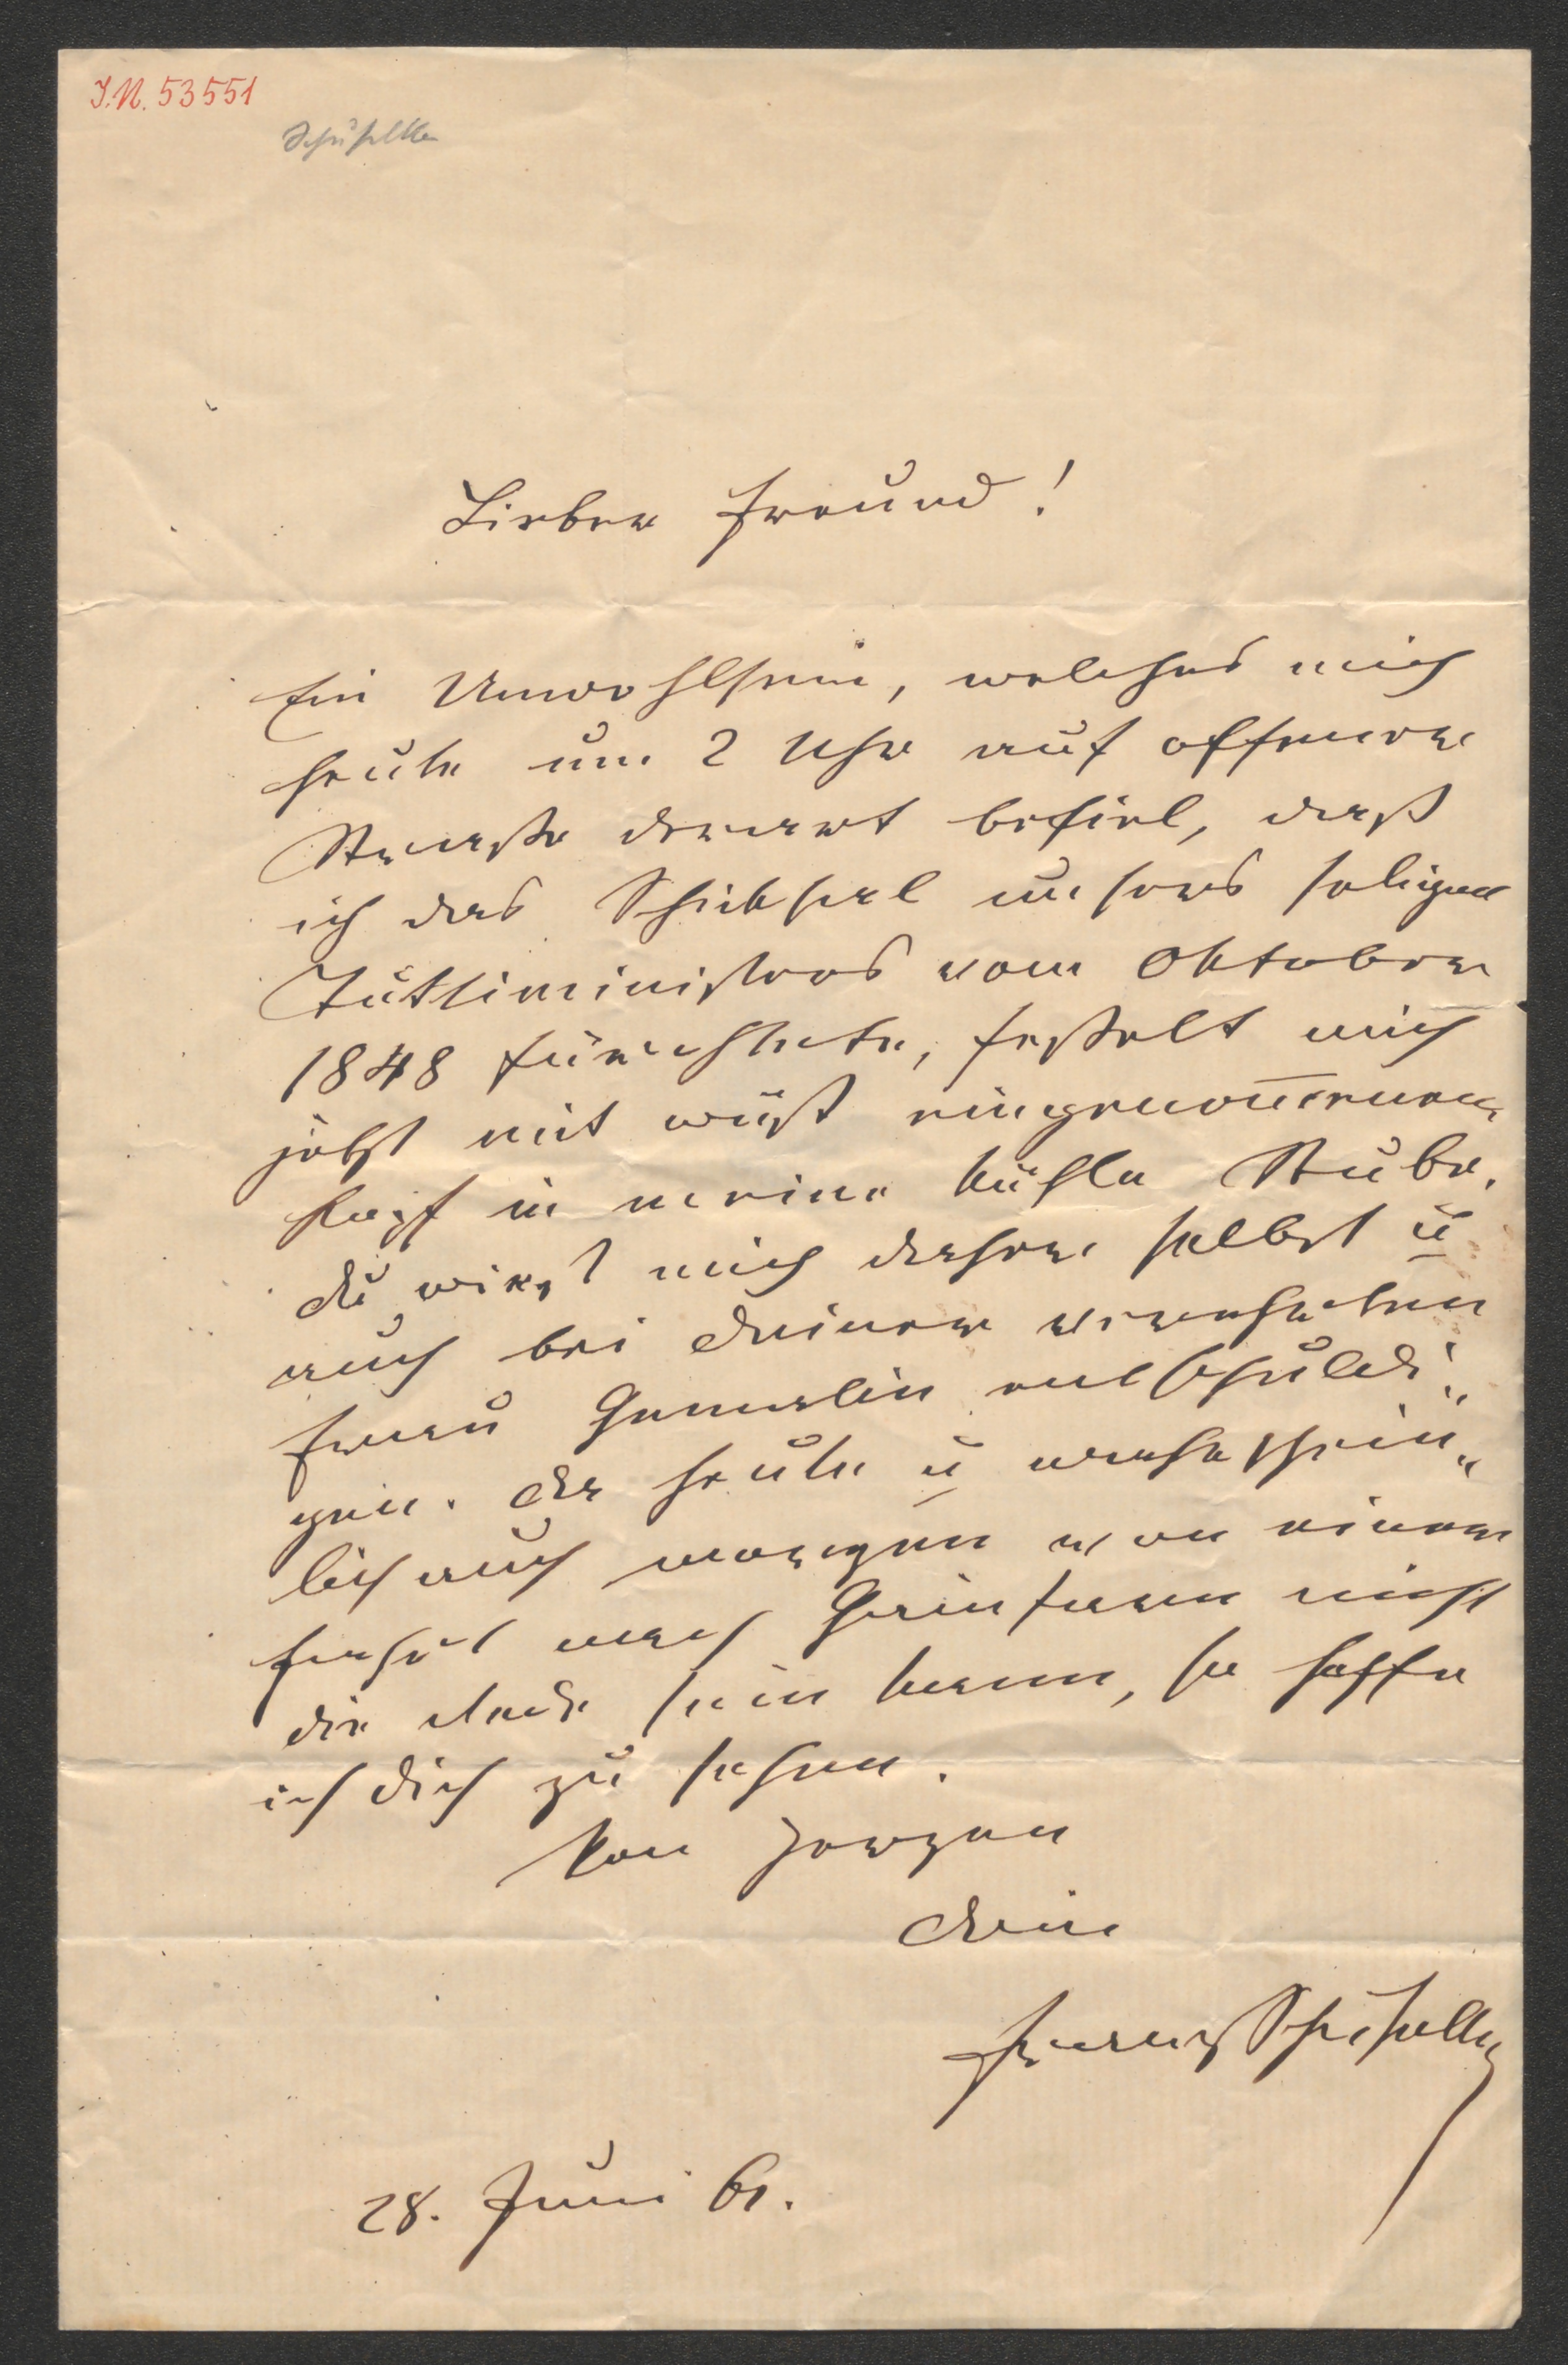 I.N. 53551
Schuselka
Lieber Freund!
Ein Unwohlsein, welches mich
heute um 2 Uhr auf offener
Straße derart befiel, daß
ich das Schiksal unsers seligen
Justizministers vom Oktober
1848 fürchtete, fesselt mich
jetzt mit wüst eingenom̅enem
Kopf in meine kühle Stube.
Du wirst mich daher selbst u
auch bei deiner verehrten
Frau Gemalin entschuldi„
gen. Da heute u wahrschein„
lich auch morgen von einer
Fahrt nach Grinfarn nicht
die Rede sein kann, so hoffe
ich dich zu sehen.
Von Herzen
Dein
Franz Schuselka
28. Juni 61.